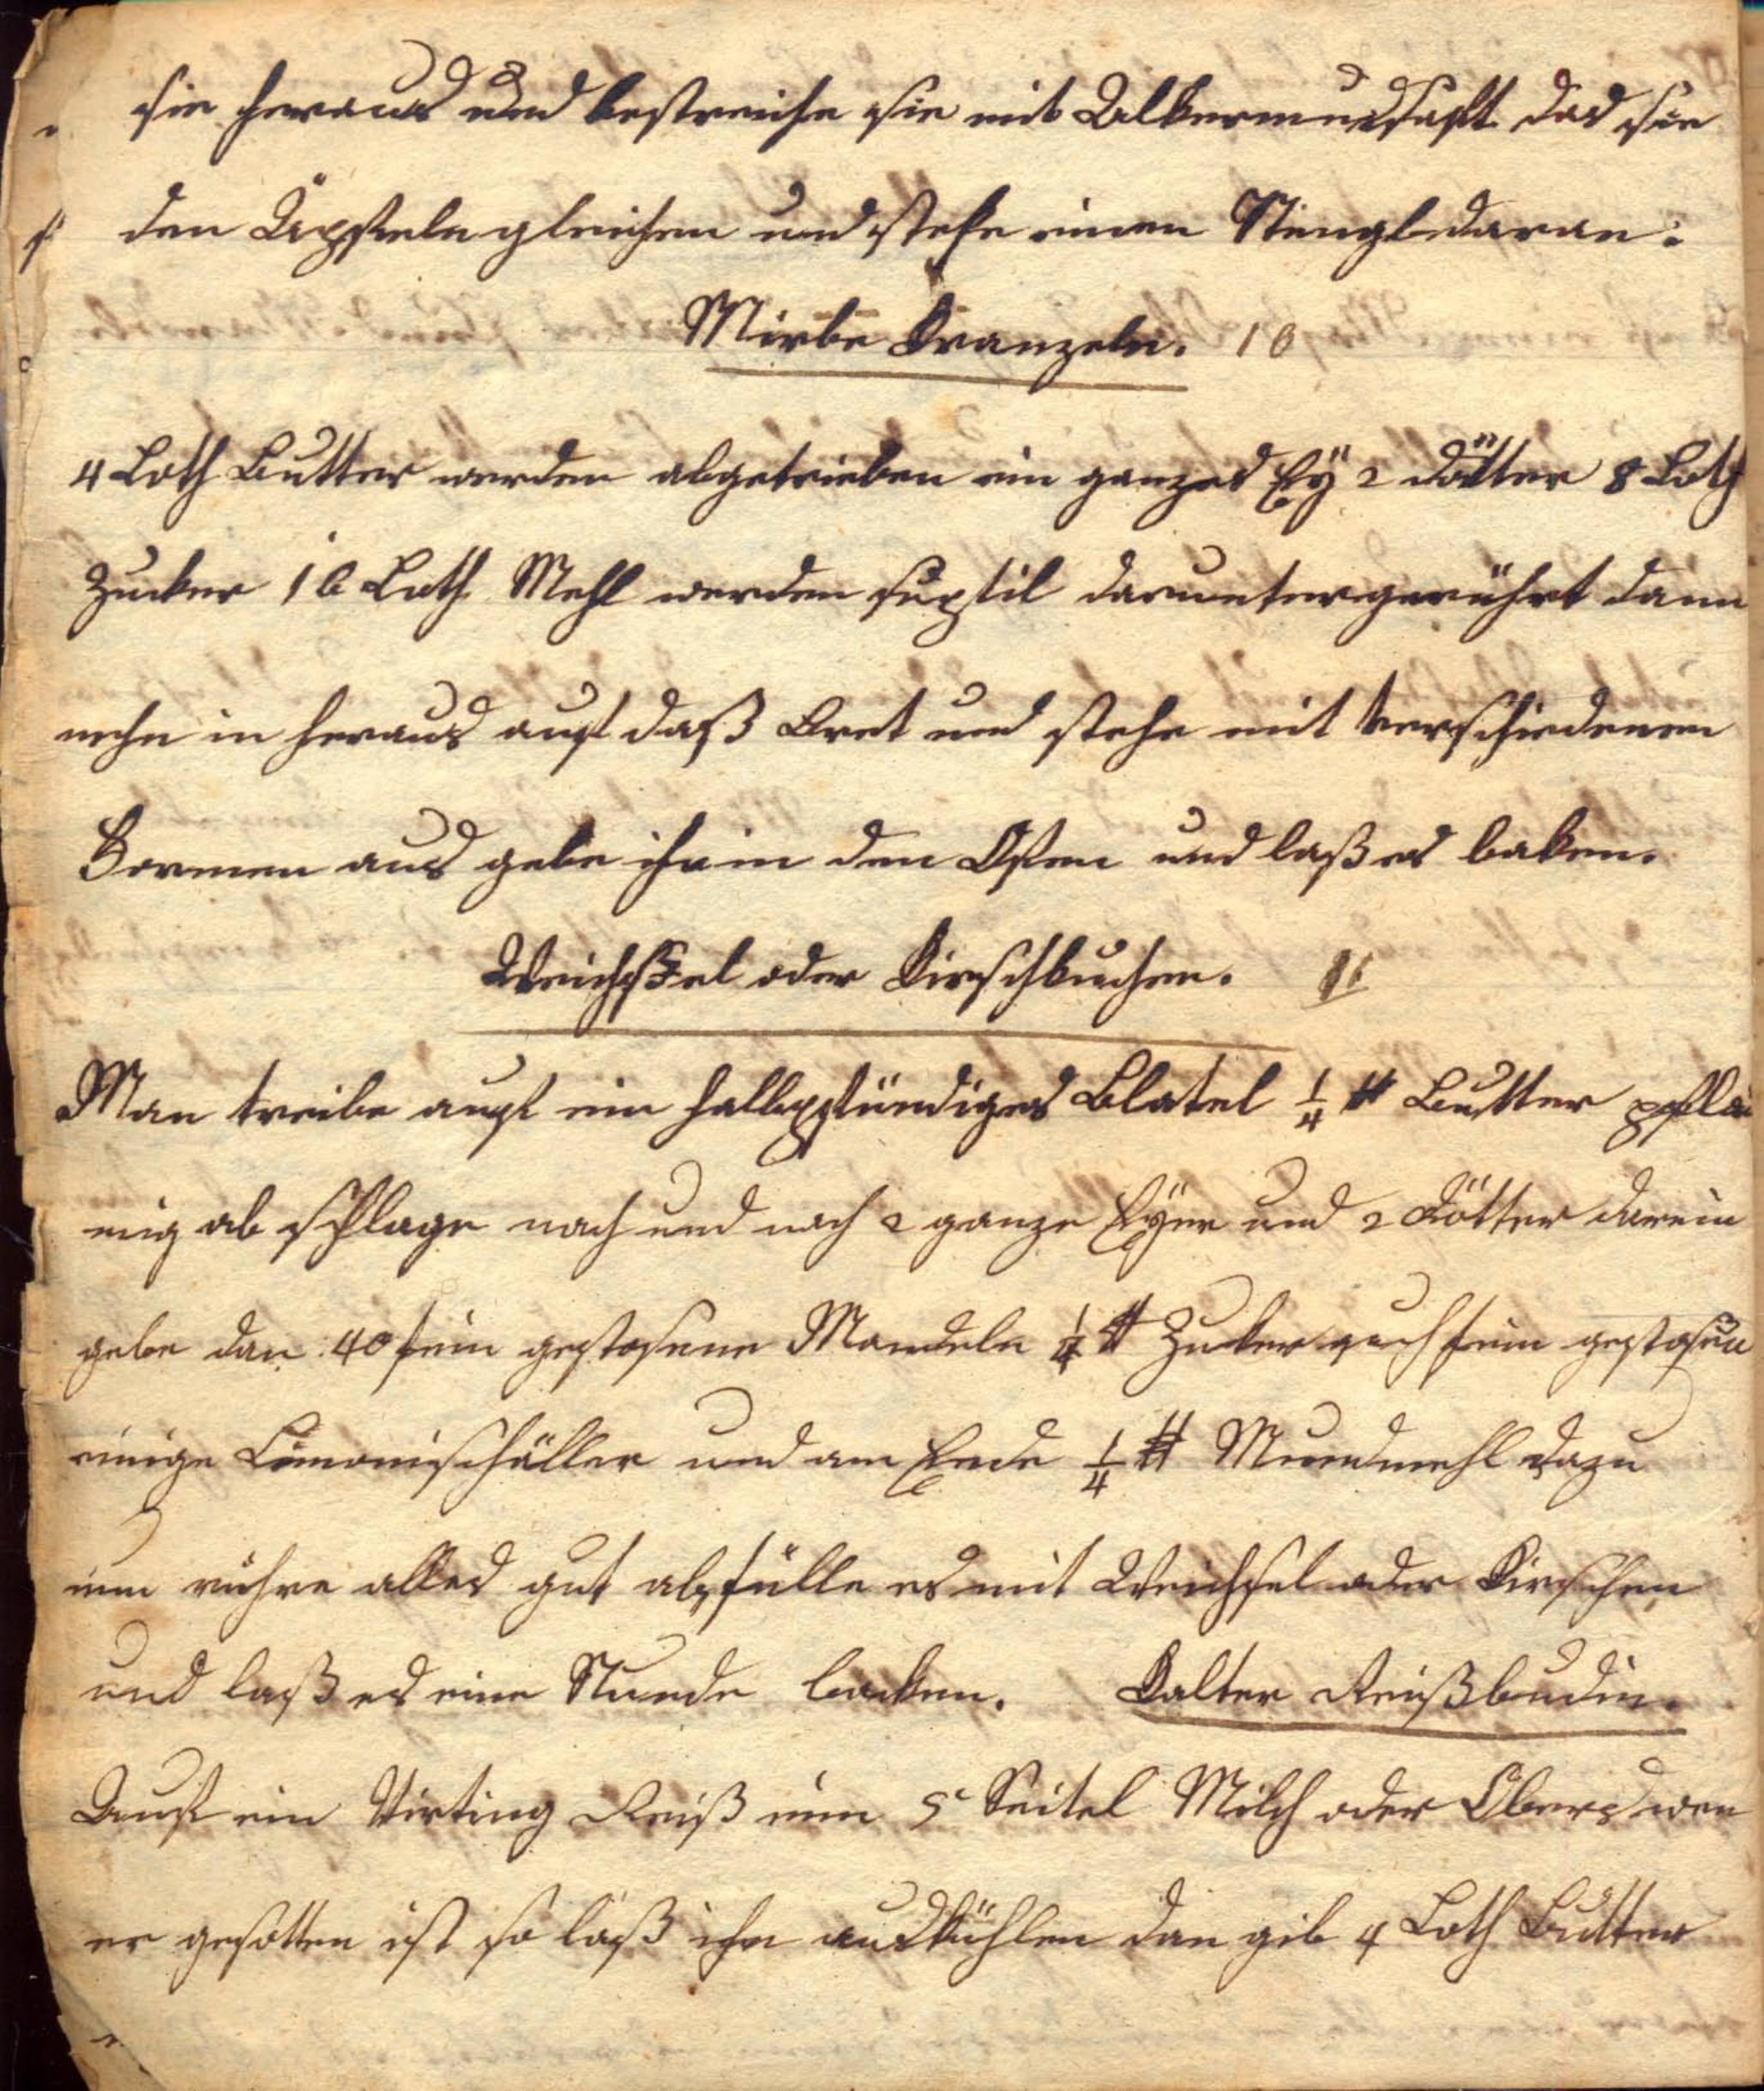 sie heraus und bestreiche sie mit Alkermessaft das sie
den Äpfeln gleichen und steke einen Stengl daran.
Mirbe Kranzeln. 10
4 Loth Butter werden abgetrieben ein ganzes Eÿ 2 Dötter 8 Loth
Zucker 16 Loth Mehl werden suptil daruntergerührt dann
nehm in heraus auf daß Bret und steche mit verschiedenen
Formen aus gebe ihn in den Ofen und laß es baken.
Weichsel oder Kirschkuchen. 11
Man treibe auf ein halbpfündiges Blatel 1/4 ℔ Butter pfla
mig ab schlage nach und nach 2 ganze Eÿer und 2 Dötter darein
gebe dan 40 fein gestosene Mandeln 1/4 ℔ Zuker auch fein gestosen
einige Limonischäller und am Ende 1/4 ℔ Mundmehl dazu
nun rühre alles gut ab, fülle es mit Weichsel oder Kirschen
und laß es eine Stunde backen. Kalter Reißbudin.
Auf ein Virting Reiß nim 5 Seitel Milch oder Obers wen
er gesotten ist so laß ihn auskühlen dan gib 4 Loth Butter